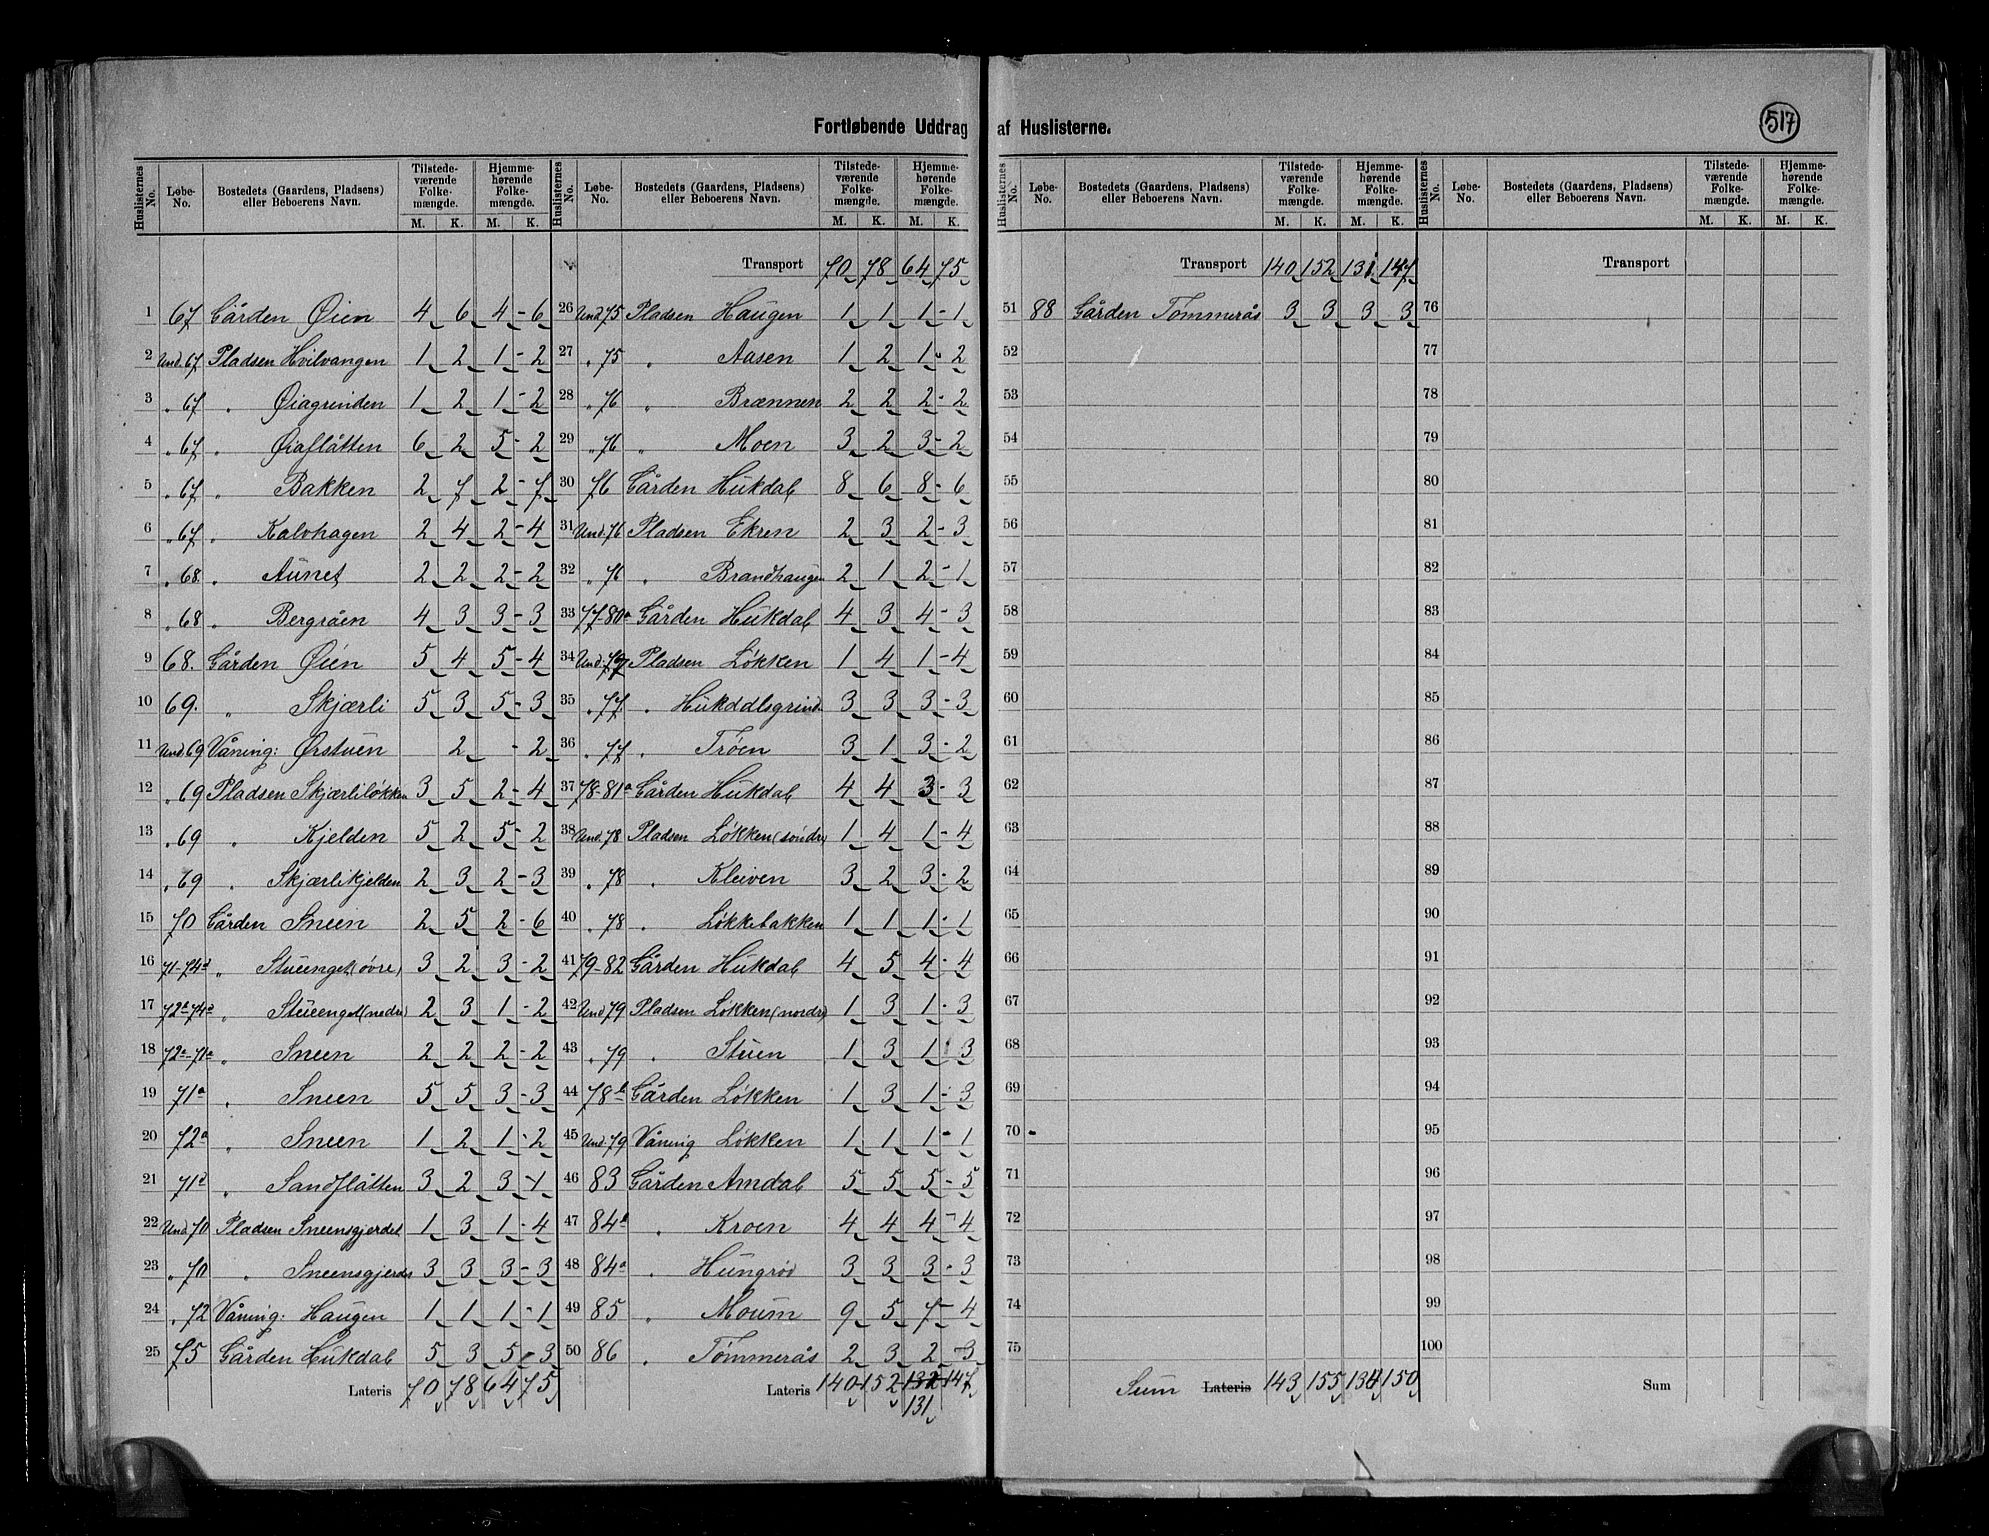 Fortløbende Uddrag af Huslisterne.
517
Huslisternes No. | Løbe-No. | Bostedets (Gaardens, Pladsens) eller Beboerens Navn. | Tilstedeværende Folkemængde. M. K. | Hjemmehørende Folkemængde. M. K.
1 67 Gården Øien 4 6 4 - 6
2 Und. 67 Pladsen Hvilvangen 1 2 1 - 2
3 " 67 " Øiagrinden 1 2 1 - 2
4 " 67 " Øiaflåtten 6 2 5 - 2
5 " 67 " Bakken 2 7 2 - 7
6 " 67 " Kalvhagen 2 4 2 - 4
7 " 68 " Aunet 2 2 2 - 2
8 " 68 " Bergråen 4 3 3 - 3
9 68. Gården Øien 5 4 5 - 4
10 69. " Skjærli 5 3 5 - 3
11 Und 69 Våning: Ørstuen 2 - 2
12 " 69 Pladsen Skjærliløkken 3 5 2 - 4
13 " 69 " Kjelden 5 2 5 - 2
14 " 69 " Skjærlikjelden 2 3 2 - 3
15 70 Gården Sneen 2 5 2 - 6
16 71-74d " Stuenget (øvre) 3 2 3 - 2
17 72a-74a " Stuenget (nedre) 2 3 1 - 2
18 72a-71a " Sneen 2 2 2 - 2
19 71a " Sneen 5 5 3 - 3
20 72a " Sneen 1 2 1 - 2
21 71d " Sandflåtten 3 2 3 - 1
22 Und 70 Pladsen Sneensgjerdet 1 3 1 - 4
23 " 70 " Sneensgjerdet 3 3 3 - 3
24 " 72 Våning: Haugen 1 1 1 - 1
25 75 Gården Hukdal 5 3 5 - 3
Lateris 70 78 64 75
Huslisternes No. | Løbe-No. | Bostedets (Gaardens, Pladsens) eller Beboerens Navn. | Tilstedeværende Folkemængde. M. K. | Hjemmehørende Folkemængde. M. K.
Transport 70 78 64 75
26 Und 75 Pladsen Haugen 1 1 1 - 1
27 " 75 " Aasen 1 2 1 - 2
28 " 76 " Brænnen 2 2 2 - 2
29 " 76 " Moen 3 2 3 - 2
30 76 Gården Hukdal 8 6 8 - 6
31 Und. 76 Pladsen Ekren 2 3 2 - 3
32 " 76 " Brandhaugen 2 1 2 - 1
33 77-80a Gården Hukdal 4 3 4 - 3
34 Und. 77 Pladsen Løkken 1 4 1 - 4
35 " 77 " Hukdalsgrind 3 3 3 - 3
36 " 77 " Trøen 3 1 3 - 2
37 78-81a Gården Hukdal 4 4 3 - 3
38 Und. 78 Pladsen Løkken (søndre) 1 4 1 - 4
39 " 78 " Kleiven 3 2 3 - 2
40 " 78 " Løkkebakken 1 1 1 - 1
41 79-82 Gården Hukdal 4 5 4 - 4
42 Und 79 Pladsen Løkken (nordre) 1 3 1 - 3
43 " 79 " Stuen 1 3 1 3
44 78b Gården Løkken 1 3 1 - 3
45 Und. 79 Våning Løkken 1 1 1 - 1
46 83 Gården Amdal 5 5 5 - 5
47 84b " Kroen 4 4 4 - 4
48 84a " Hungrød 3 3 3 - 3
49 85 " Moum 9 5 7 - 4
50 86 " Tømmerås 2 3 2 - 3
Lateris 140 152 132 147
131
Huslisternes No. | Løbe-No. | Bostedets (Gaardens, Pladsens) eller Beboerens Navn. | Tilstedeværende Folkemængde. M. K. | Hjemmehørende Folkemængde. M. K.
Transport 140 152 131 147
51 88 Gården Tømmerås 3 3 3 3
52
53
54
55
56
57
58
59
60
61
62
63
64
65
66
67
68
69
70
71
72
73
74
75
Sum Lateris 143 155 134 150
Huslisternes No. | Løbe-No. | Bostedets (Gaardens, Pladsens) eller Beboerens Navn. | Tilstedeværende Folkemængde. M. K. | Hjemmehørende Folkemængde. M. K.
Transport
76
77
78
79
80
81
82
83
84
85
86
87
88
89
90
91
92
93
94
95
96
97
98
99
100
Sum